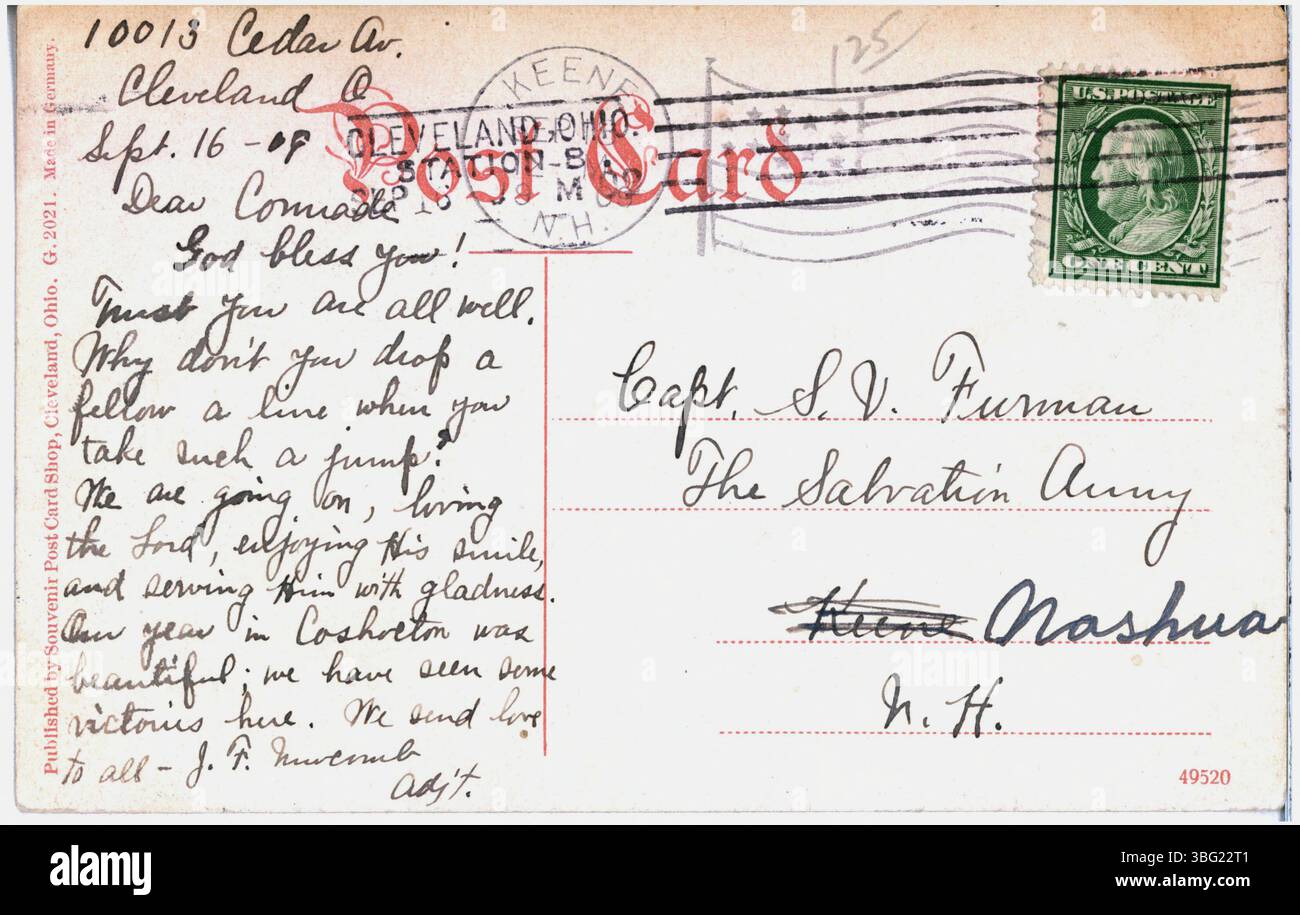 10013 Cedar Av.
Cleveland O
Sept. 16 - 09
Dear Comrade
God bless you!
Trust you are all well.
Why don't you drop a
fellow a line when you
take such a jump?
We are going on, loving
the Lord, enjoying His smile,
and serving Him with gladness.
Our year in Coshocton was
beautiful; we have seen some
victories here. We send love
to all - J. F. Newcomb
Adjt.
Post Card
KEENE
N.H.
CLEVELAND, OHIO.
STATION-B
SEP 16
M
125
U.S. POSTAGE
ONE CENT
Capt. S. V. Furman
The Salvation Army
Keene Nashua
N. H.
49520
Published by Souvenir Post Card Shop, Cleveland, Ohio. G. 2021. Made in Germany.
alamy
Image ID: 3BG22T1
www.alamy.com